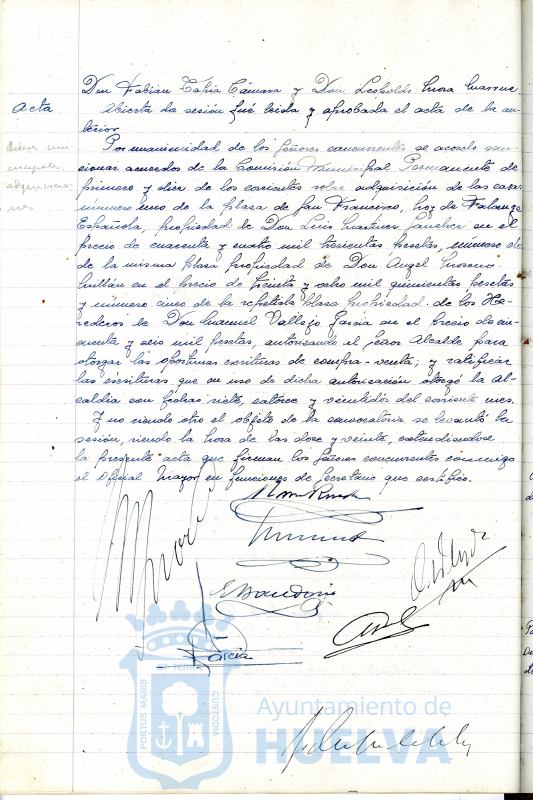 Don Fabian Tapia Cámara y Don Leopoldo
Acta
Abierta la sesión fué leida y aprobada el acta de la an-
terior.
Bienes mu-
nicipales
adquisicio-
nes
Por unanimidad de los Señores concurrentes se acordo san-
cionar acuerdos de la Comisión Municipal Permanente de
primero y diez de los corrientes sobre adquisición de las casas
número uno de la plaza de San Francisco, hoy de Falange
Española, propiedad de Don Luis Martinez Sanchez en el
precio de cuarenta y cuatro mil trescientas pesetas, número
de la misma plaza propiedad de Don Angel Moreno
en el precio de treinta y ocho mil quinientas pesetas
y número cinco de la repetida plaza propiedad de los He-
rederos de Don Manuel Vallejo Garcia en el precio de cin-
cuenta y seis mil pesetas, autorizando al Señor Alcalde para
otorgar las oportunas escrituras de compra-venta; y ratificar
las escrituras que en uso de dicha autorización otorgó la Al-
caldia con fechas siete, catorce y veintidos del corriente mes.
Y no siendo otro el objeto de la convocatoria se levantó la
sesión, siendo la hora de las doce y veinte, extendiendose
la presente acta que firman los Señores concurrentes conmigo
el Oficial Mayor en funciones de Secretario que certifico.
Garcia
PORTUS MARIS
ET TERRE
CUSTODIA
Ayuntamiento de
HUELVA